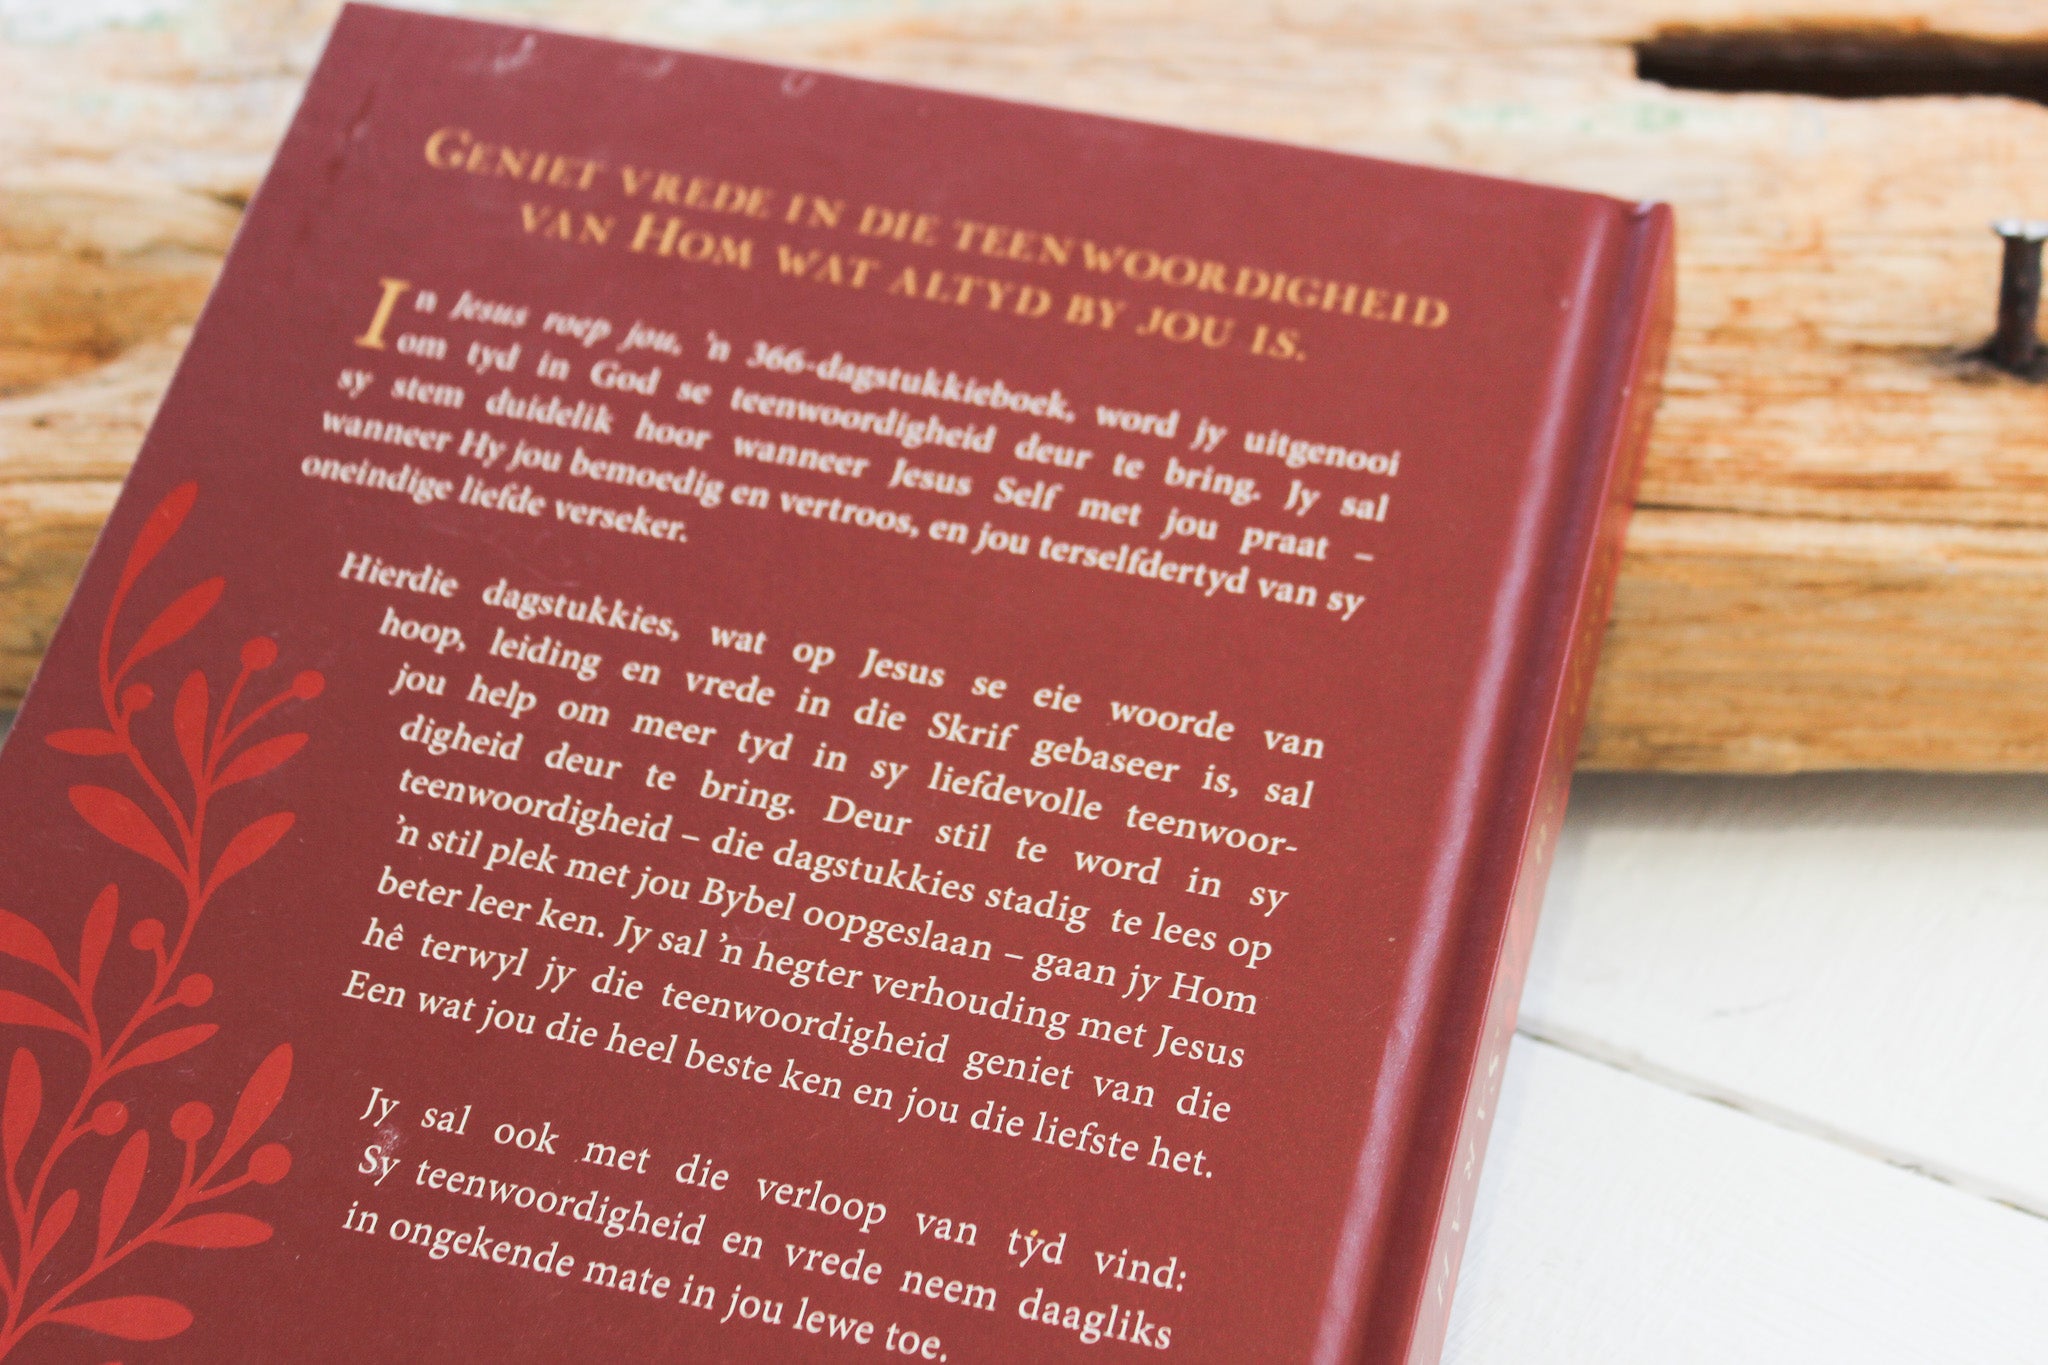 GENIET VREDE IN DIE TEENWOORDIGHEID
VAN HOM WAT ALTYD BY JOU IS.
In Jesus roep jou, 'n 366-dagstukkieboek, word jy uitgenooi
om tyd in God se teenwoordigheid deur te bring. Jy sal
sy stem duidelik hoor wanneer Jesus Self met jou praat –
wanneer Hy jou bemoedig en vertroos, en jou terselfdertyd van sy
oneindige liefde verseker.
Hierdie dagstukkies, wat op Jesus se eie woorde van
hoop, leiding en vrede in die Skrif gebaseer is, sal
jou help om meer tyd in sy liefdevolle teenwoor-
digheid deur te bring. Deur stil te word in sy
teenwoordigheid – die dagstukkies stadig te lees op
'n stil plek met jou Bybel oopgeslaan – gaan jy Hom
beter leer ken. Jy sal 'n hegter verhouding met Jesus
hê terwyl jy die teenwoordigheid geniet van die
Een wat jou die heel beste ken en jou die liefste het.
Jy sal ook met die verloop van tyd vind:
Sy teenwoordigheid en vrede neem daagliks
in ongekende mate in jou lewe toe.